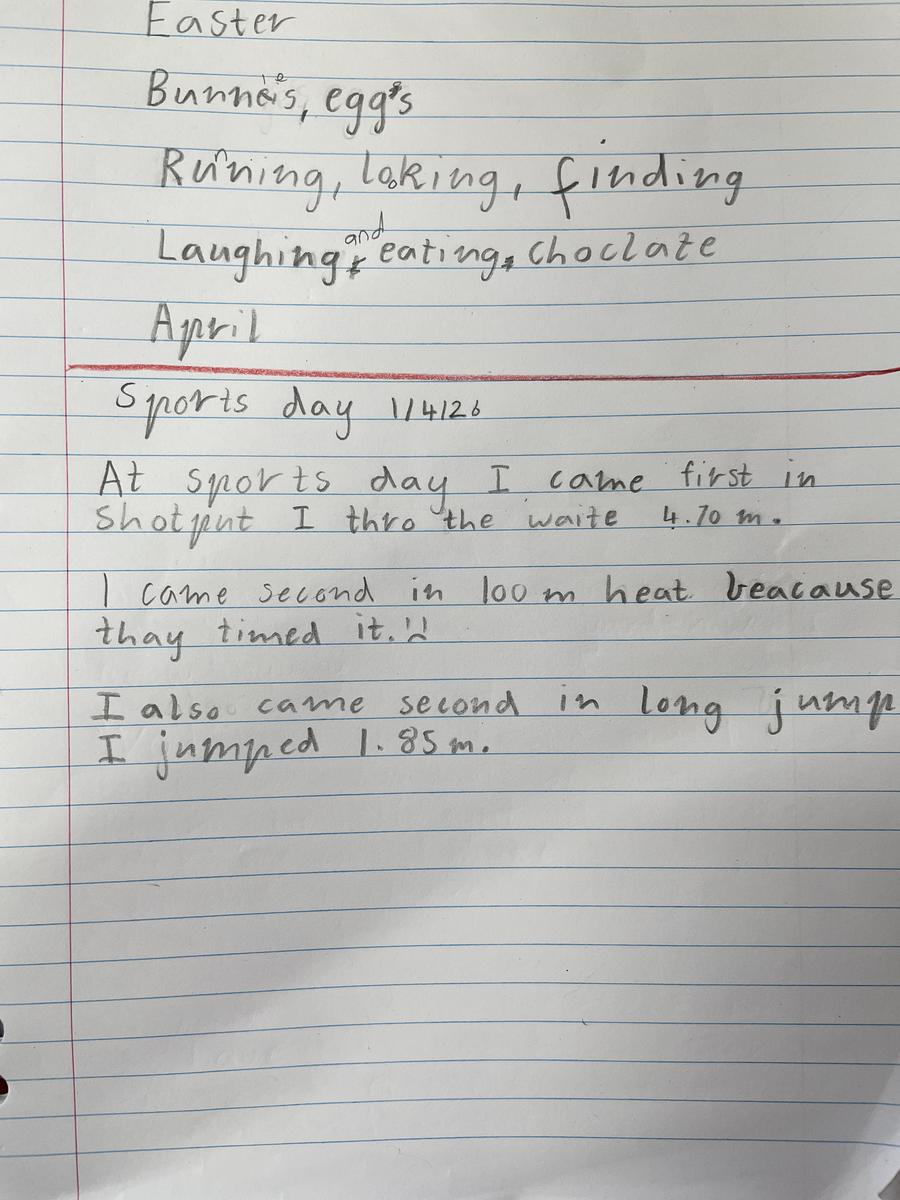 Easter
Bunnies, eggs
Runing, loking, finding
Laughing and eating choclate
April
Sports day 1/4/26
At sports day I came first in
Shotput I thro the waite 4.70 m.
I came second in 100 m heat beacause
thay timed it.
I also came second in long jump
I jumped 1.85 m.